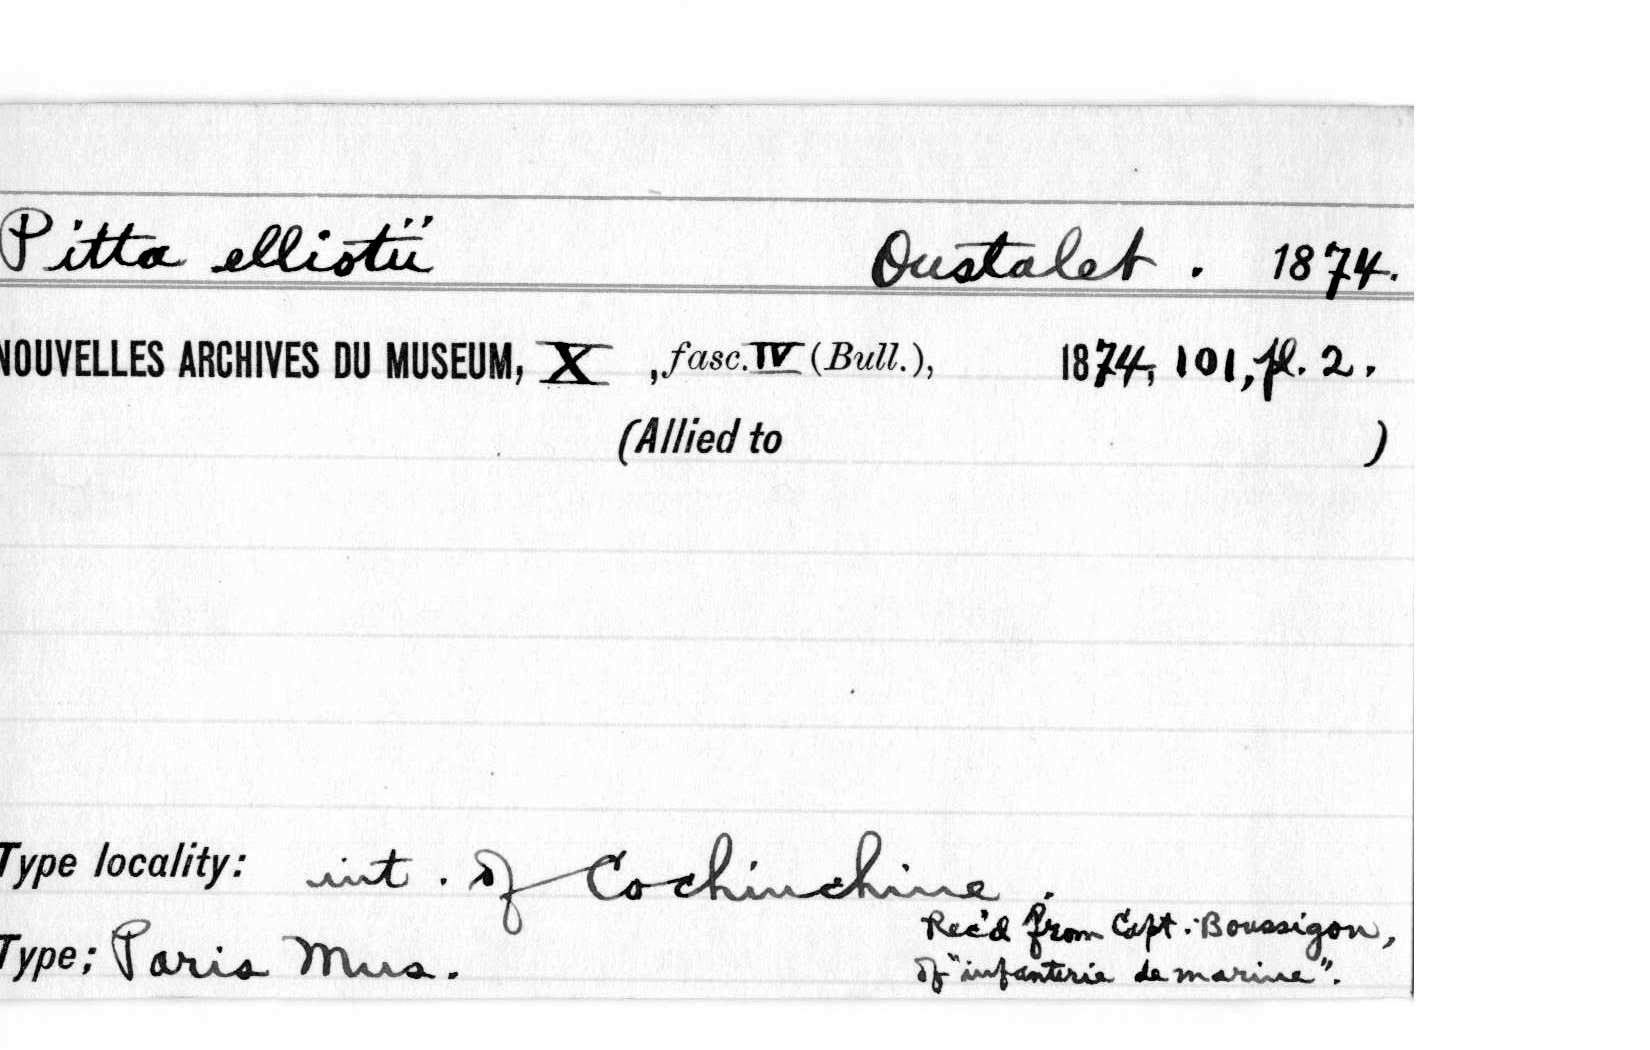 Pitta elliotii Oustalet. 1874.
NOUVELLES ARCHIVES DU MUSEUM, X, fasc. IV (Bull.), 1874, 101, pl. 2.
(Allied to )
Type locality: int. of Cochinchine.
Rec'd from Capt. Boussigon,
Type; Paris Mus.
of "infanterie de marine".